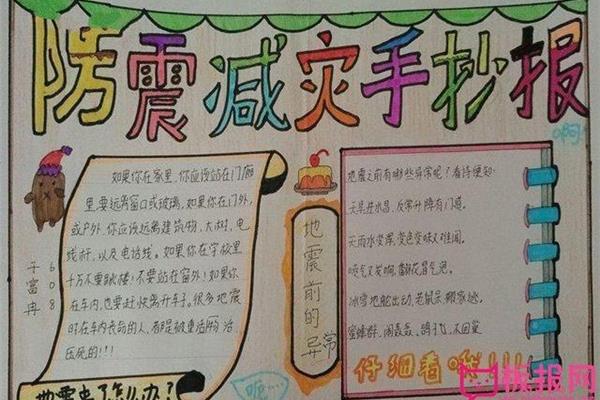 防震减灾手抄报
啊
如果你在家里,你应该站在门廊
里,要远离窗口或玻璃.如果你在门外,
或户外.你应该远离建筑物,大树,电
线杆,以及电话线。如果你在学校里
十万不要跳楼!不要站在窗外!如果你
在车内,也要赶快离开车子。很多地震
时在车内丧命的人,都是被重活物 治
压死的!!!
于富冉
608
地震来了怎么办?
地震前的异常
地震之前有哪些异常呢?看诗便知:
天旱井水冒,反常升降有门道。
天雨水变浑,变色变味又难闻。
喷气又发响,翻花冒气泡。
冰雪地蛇出动,老鼠
蜜蜂群,闹轰轰、鸽子飞,不回巢
仔细看哦!!!
呃……
板报网